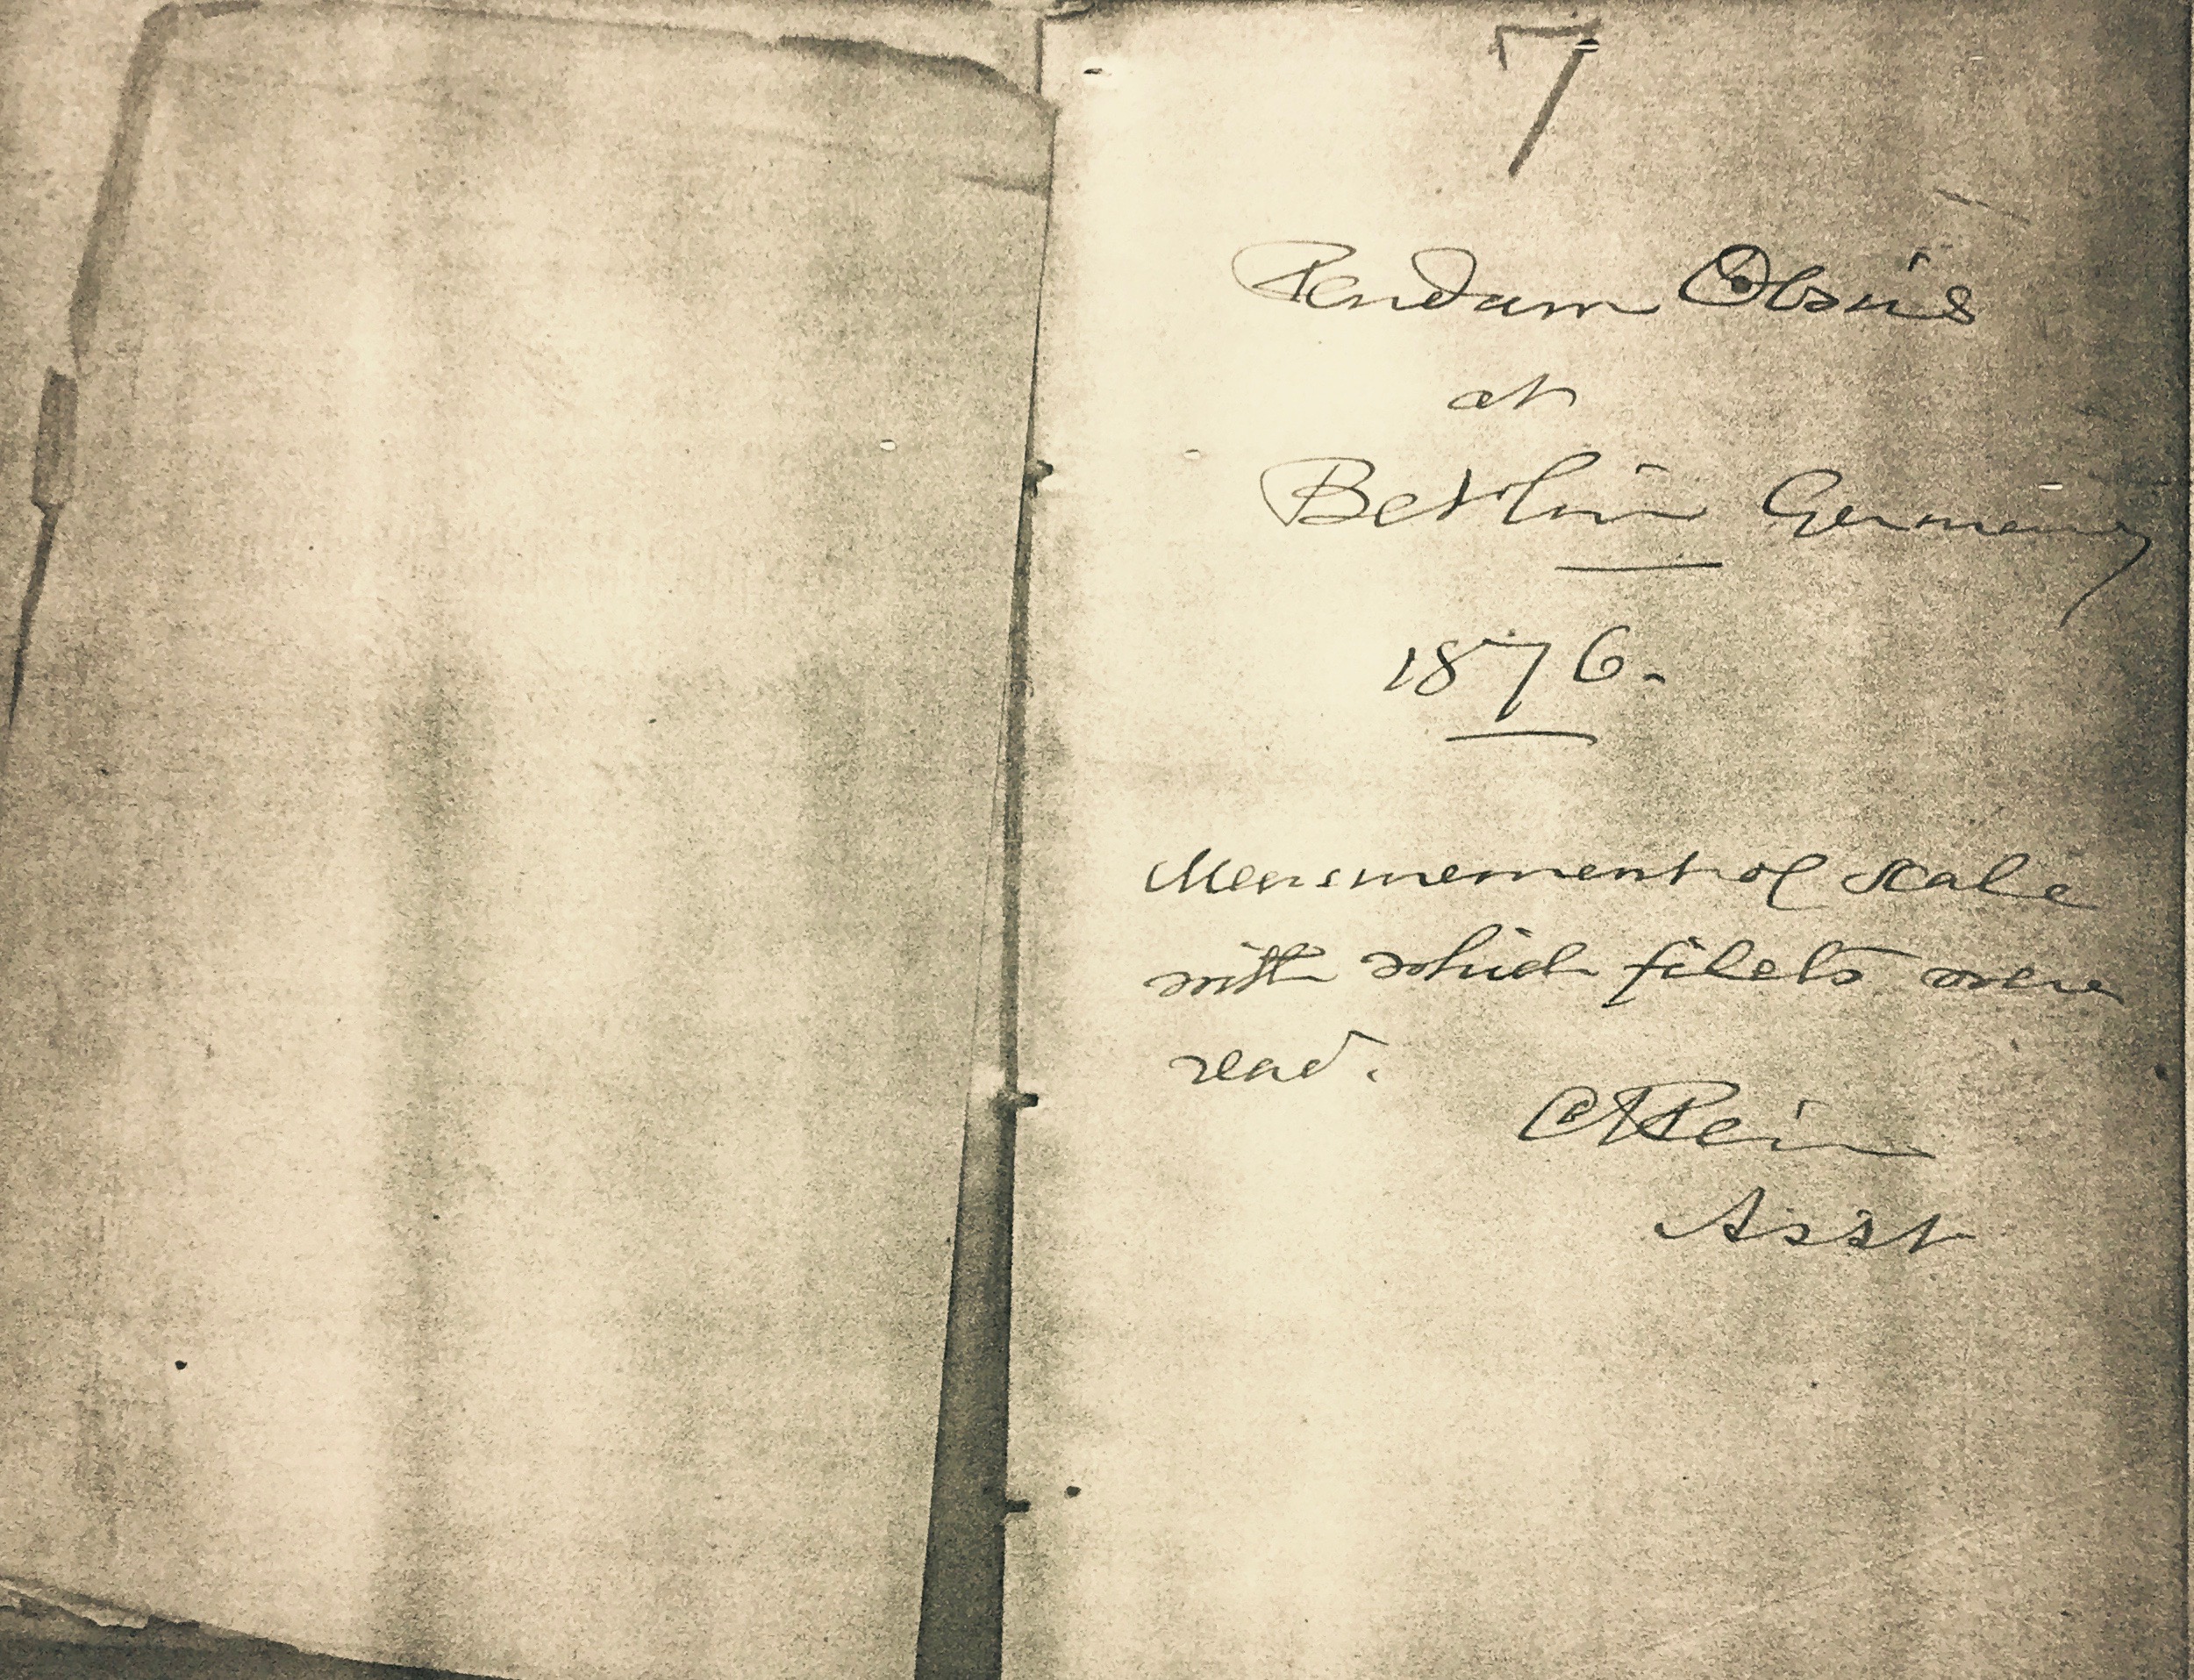 7
Pendum Obsns
at
Berlin Germany
1876.
Measurement of scale
with which filets were
read.
CSPeirce
Asst